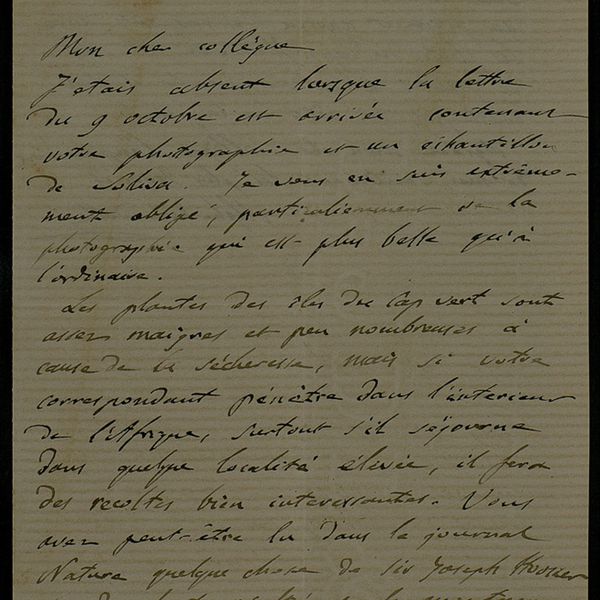 Mon cher collègue
J'etais absent lorsque la lettre
du 9 octobre est arrivée contenant
votre photographie et un échantillon
de Soliva. Je vous en suis extrême-
ment obligé, particulièrement de la
photographie qui est plus belle qu'à
l'ordinaire.
Les plantes des îles du Cap vert sont
assez maigres et peu nombreuses à
cause de la sécheresse, mais si votre
correspondant pénètre dans l'interieur
de l'Afrique, surtout s'il séjourne
dans quelque localité élevée, il fera
des recoltes bien interessantes. Vous
avez peut-être lu dans le journal
Nature quelque chose de sir Joseph Hooker